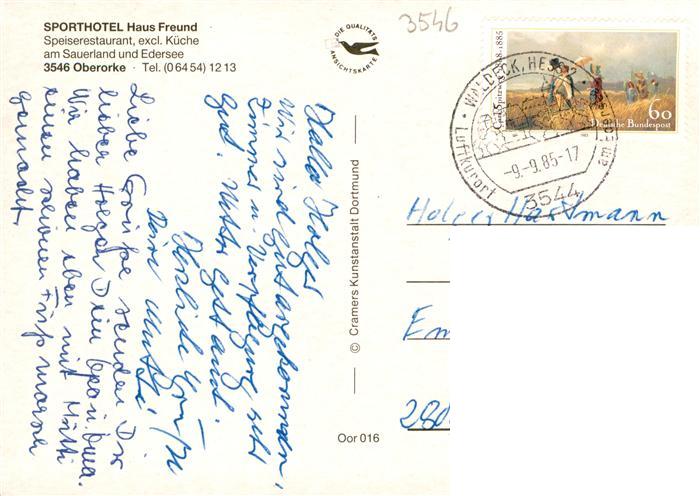 SPORTHOTEL Haus Freund
Speiserestaurant, excl. Küche
am Sauerland und Edersee
3546 Oberorke · Tel. (0 64 54) 12 13
DIE QUALITÄTS
ANSICHTSKARTE
3546
Carl Spitzweg 1808-1885
60
Deutsche Bundespost
WALDECK, HESS
-9.-9.85-17
Luftkurort
3544
Hallo Holger
Wir sind gut angekommen,
Zimmer u. Verpflegung sehr
gut. Wetter
Herzliche Grüße
Deine Mutti
Liebe Grüße senden Dir
lieber Holger Dein Opa u. Oma.
Wir haben eben mit Mutti
einen schönen
gemacht
© Cramers Kunstanstalt Dortmund
Oor 016
Holger Hartmann
Em
280